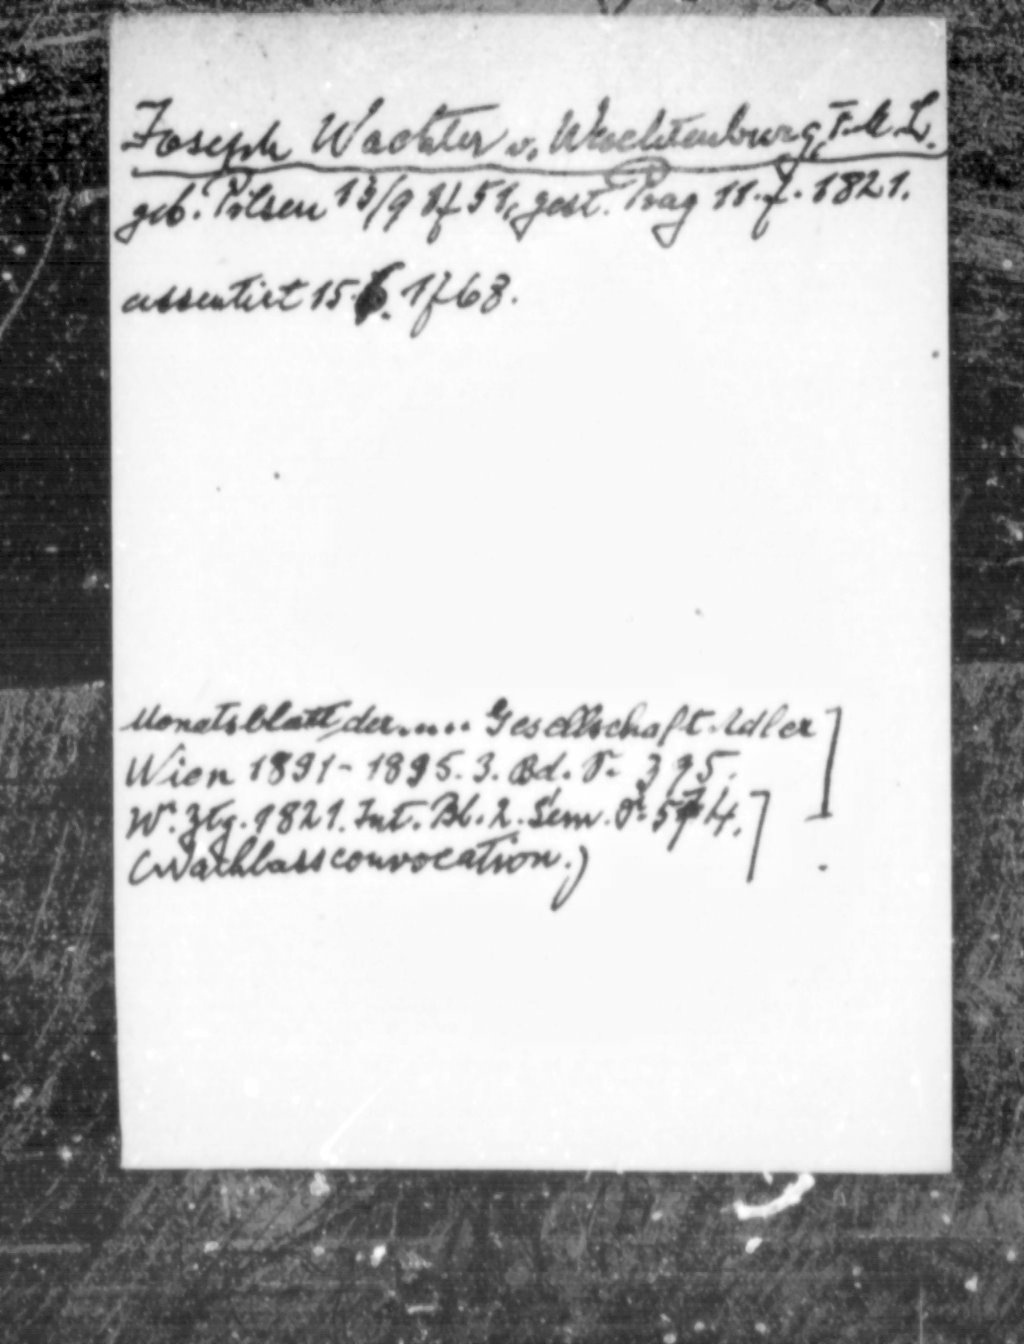 Joseph Wachter v. Wachtenburg, F.M.L.
geb. Pilsen 13/9 1751, gest. Prag 11.7.1821.
assentirt 15.6.1768.
Monatsblatt der..... Gesellschaft Adler
Wien 1891-1895. 3. Bd. S. 395.
W. Ztg. 1821. Int. Bl. 2. Sem. S. 574.
(Nachlassconvocation.)